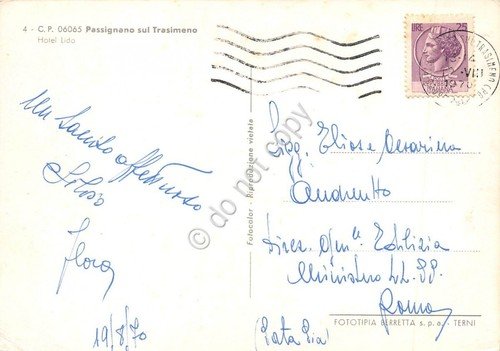 4 - C. P. 06065 Passignano sul Trasimeno
Hotel Lido
LIRE 25
Un saluto affettuoso
Silvio
Flora
19/8/70
Fotocolor - Riproduzione vietata
do not copy
Sigg. Elio e Cesarina
Andreotto
Direz. Gen.le Edilizia
Ministero LL. PP.
Roma
(Porta Pia)
FOTOTIPIA BERRETTA s.p.a. - TERNI